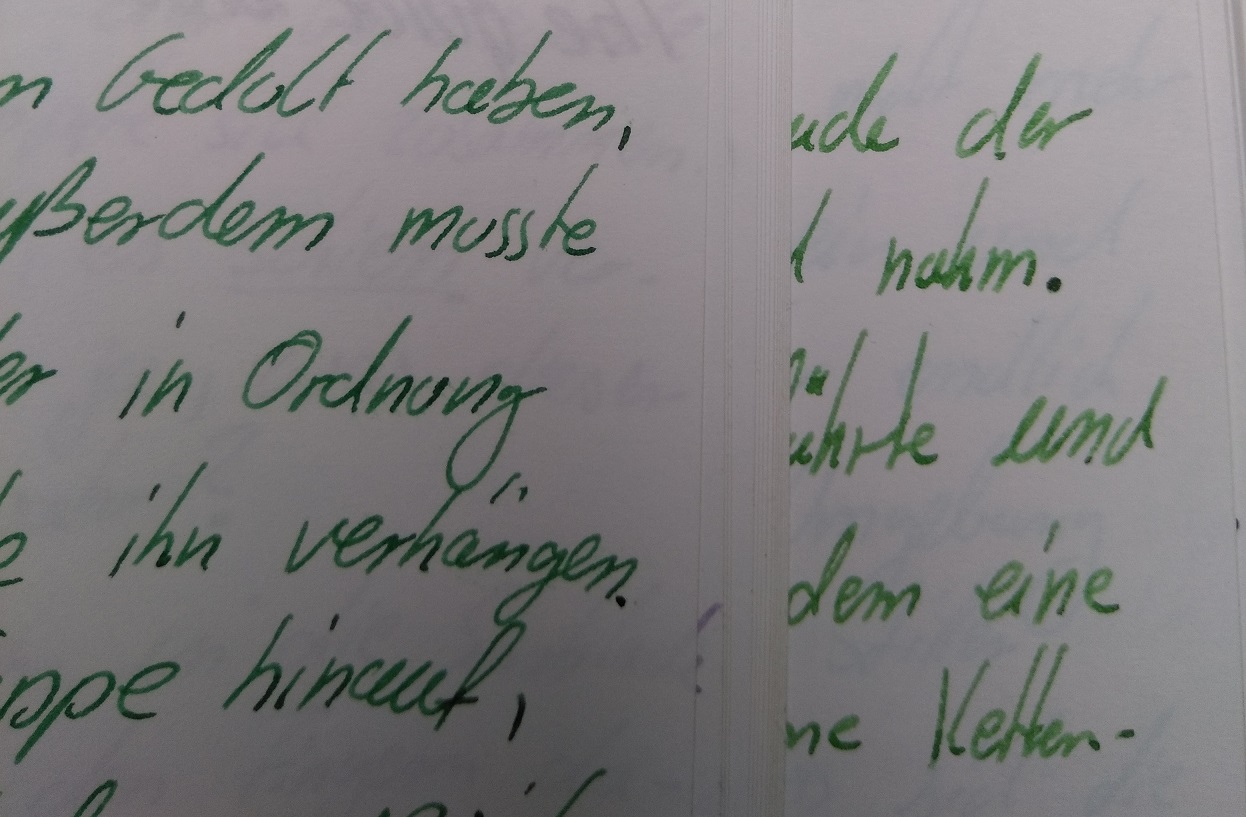 n Gedult haben,
ußerdem musste
er in Ordnung
e ihn verhängen.
ppe hinauf,
ude der
d nahm.
ührte und
dem eine
ne Ketten-